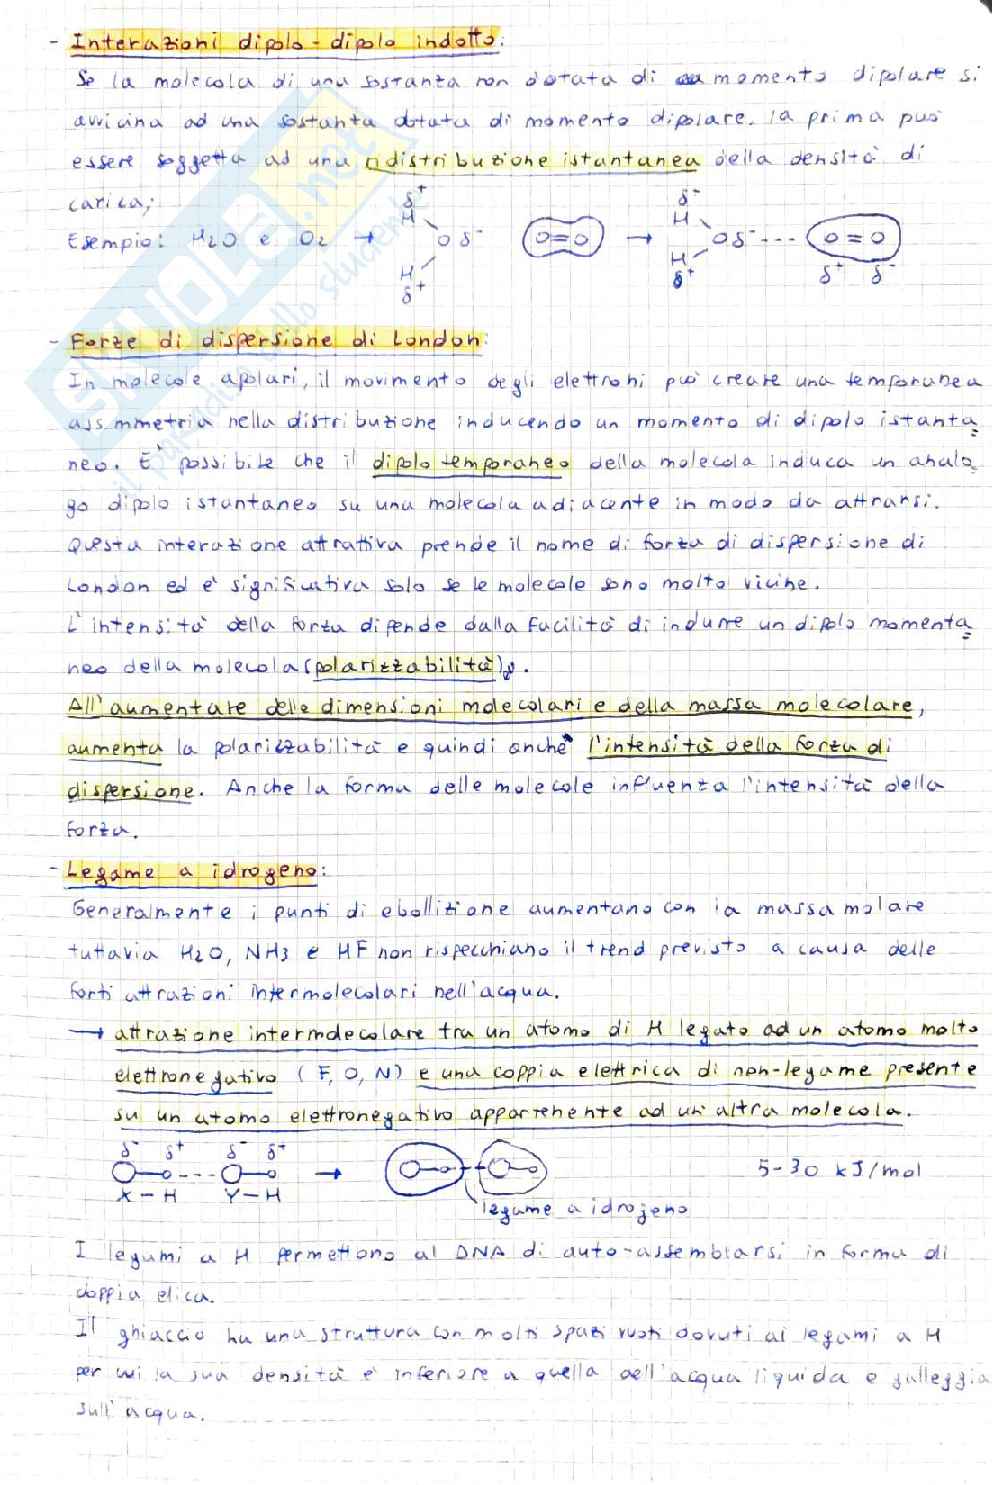 - Interazioni dipolo-dipolo indotto:
Se la molecola di una sostanza non dotata di momento dipolare si
avvicina ad una sostanza dotata di momento dipolare, la prima può
essere soggetta ad una ridistribuzione istantanea della densità di
carica;
Esempio: H2O e O2 → δ+ H H δ+ O δ- O=O → δ- H H δ+ O δ- --- O=O δ+ δ-
- Forze di dispersione di London:
In molecole apolari, il movimento degli elettroni può creare una temporanea
assimmetria nella distribuzione inducendo un momento di dipolo istanta
neo. È possibile che il dipolo temporaneo della molecola induca un analo
go dipolo istantaneo su una molecola adiacente in modo da attrarsi.
Questa interazione attrattiva prende il nome di forza di dispersione di
London ed è significativa solo se le molecole sono molto vicine.
L'intensità della forza dipende dalla facilità di indurre un dipolo momenta
neo della molecola (polarizzabilità).
All'aumentare delle dimensioni molecolari e della massa molecolare,
aumenta la polarizzabilità e quindi anche l'intensità della forza di
dispersione. Anche la forma delle molecole influenza l'intensità della
forza.
- Legame a idrogeno:
Generalmente i punti di ebollizione aumentano con la massa molare
tuttavia H2O, NH3 e HF non rispecchiano il trend previsto a causa delle
forti attrazioni intermolecolari nell'acqua.
→ attrazione intermolecolare tra un atomo di H legato ad un atomo molto
elettronegativo (F, O, N) e una coppia elettrica di non-legame presente
su un atomo elettronegativo appartenente ad un'altra molecola.
δ- δ+ δ- δ+
X-H Y-H → 5-30 kJ/mol
legame a idrogeno
I legami a H permettono al DNA di auto-assemblarsi in forma di
doppia elica.
Il ghiaccio ha una struttura con molti spazi vuoti dovuti ai legami a H
per cui la sua densità è inferiore a quella dell'acqua liquida e galleggia
sull'acqua.
SKUOLA.net
il paradiso dello studente